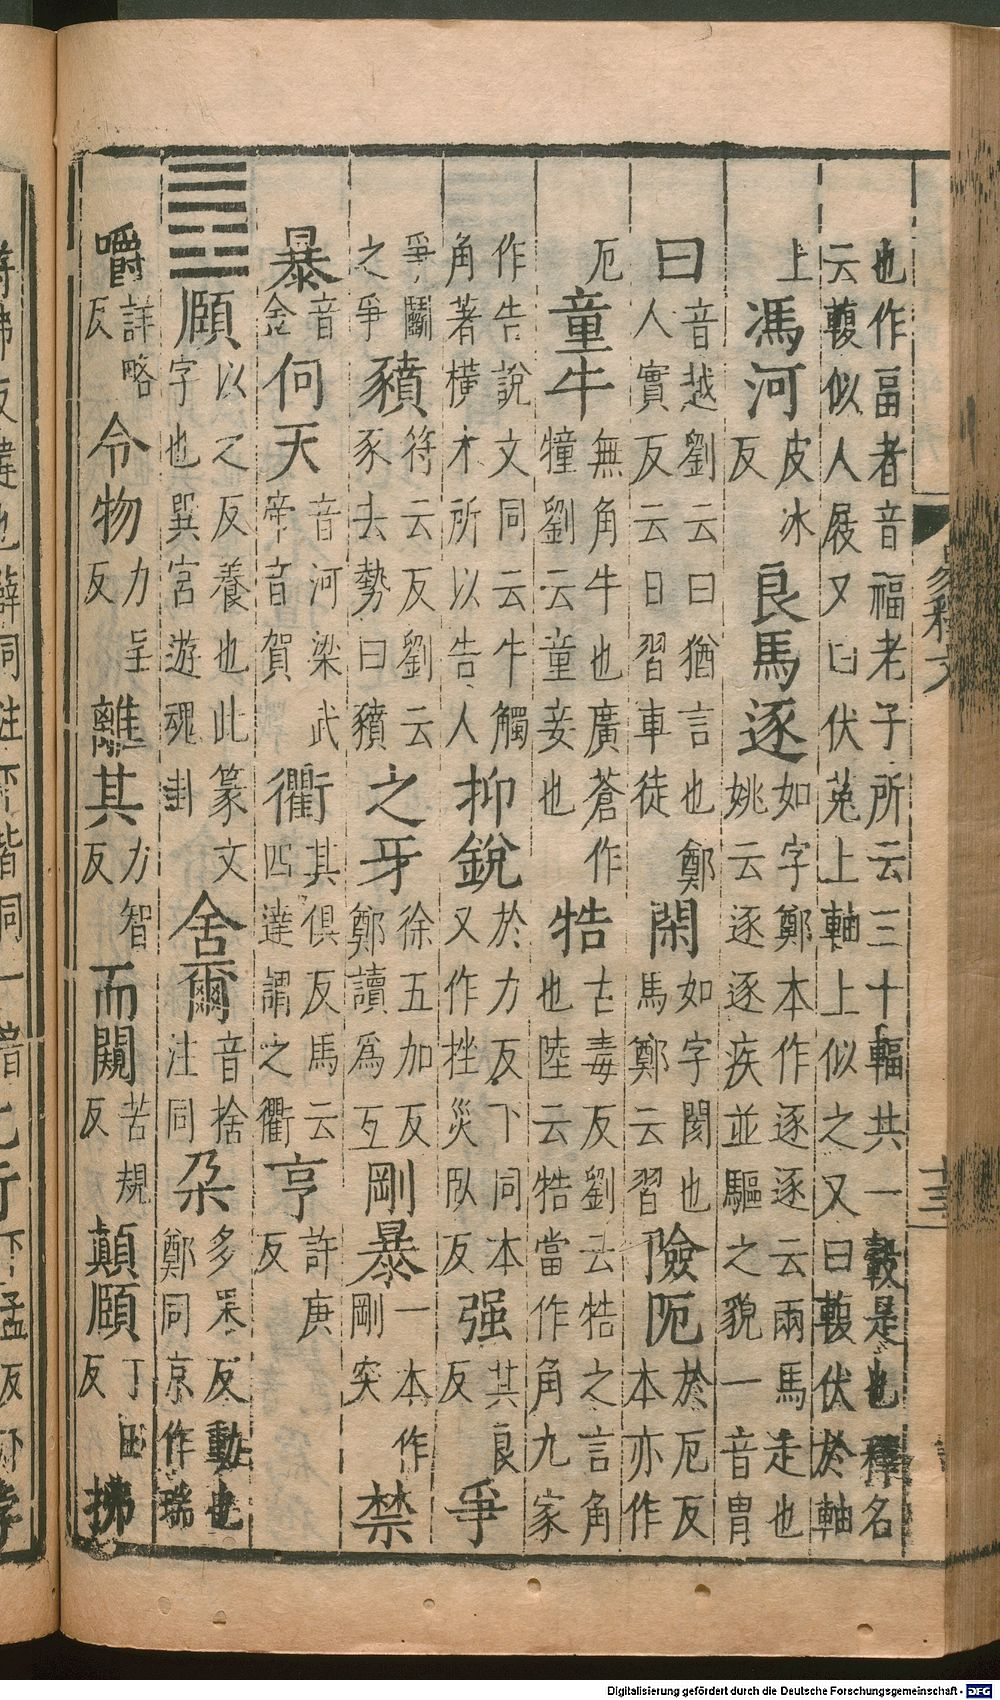 也作畐者音福老子所云三十輻共一轂是也釋名云輹似人屐又曰伏菟上軸上似之又曰輹伏於軸
上馮河皮冰反良馬逐如字鄭本作逐逐云兩馬走也姚云逐逐疾並驅之貌一音胄
曰音越劉云曰猶言也鄭人實反云日習車徒閑如字閡也馬鄭云習險阨於厄反本亦作
厄童牛無角牛也廣蒼作犝劉云童妾也牿古毒反劉云牿之言角也陸云牿當作角九家
作告說文同云牛觸角著橫木所以告人抑銳於力反下同本又作挫災臥反强其良反爭
爭鬭之爭豶符云反劉云豕去勢曰豶之牙徐五加反鄭讀爲互剛暴一本作剛突禁
暴音金何天音河梁武帝音賀衢其俱反馬云四達謂之衢亨許庚反
䷚頤以之反養也此篆文字也巽宮遊魂卦舍爾音捨注同朵多果反動也鄭同京作瑞
嚼詳略反令物力呈反離其力智反而闚苦規反顚頤丁田反拂
易釋文 十三
Digitalisierung gefördert durch die Deutsche Forschungsgemeinschaft - DFG